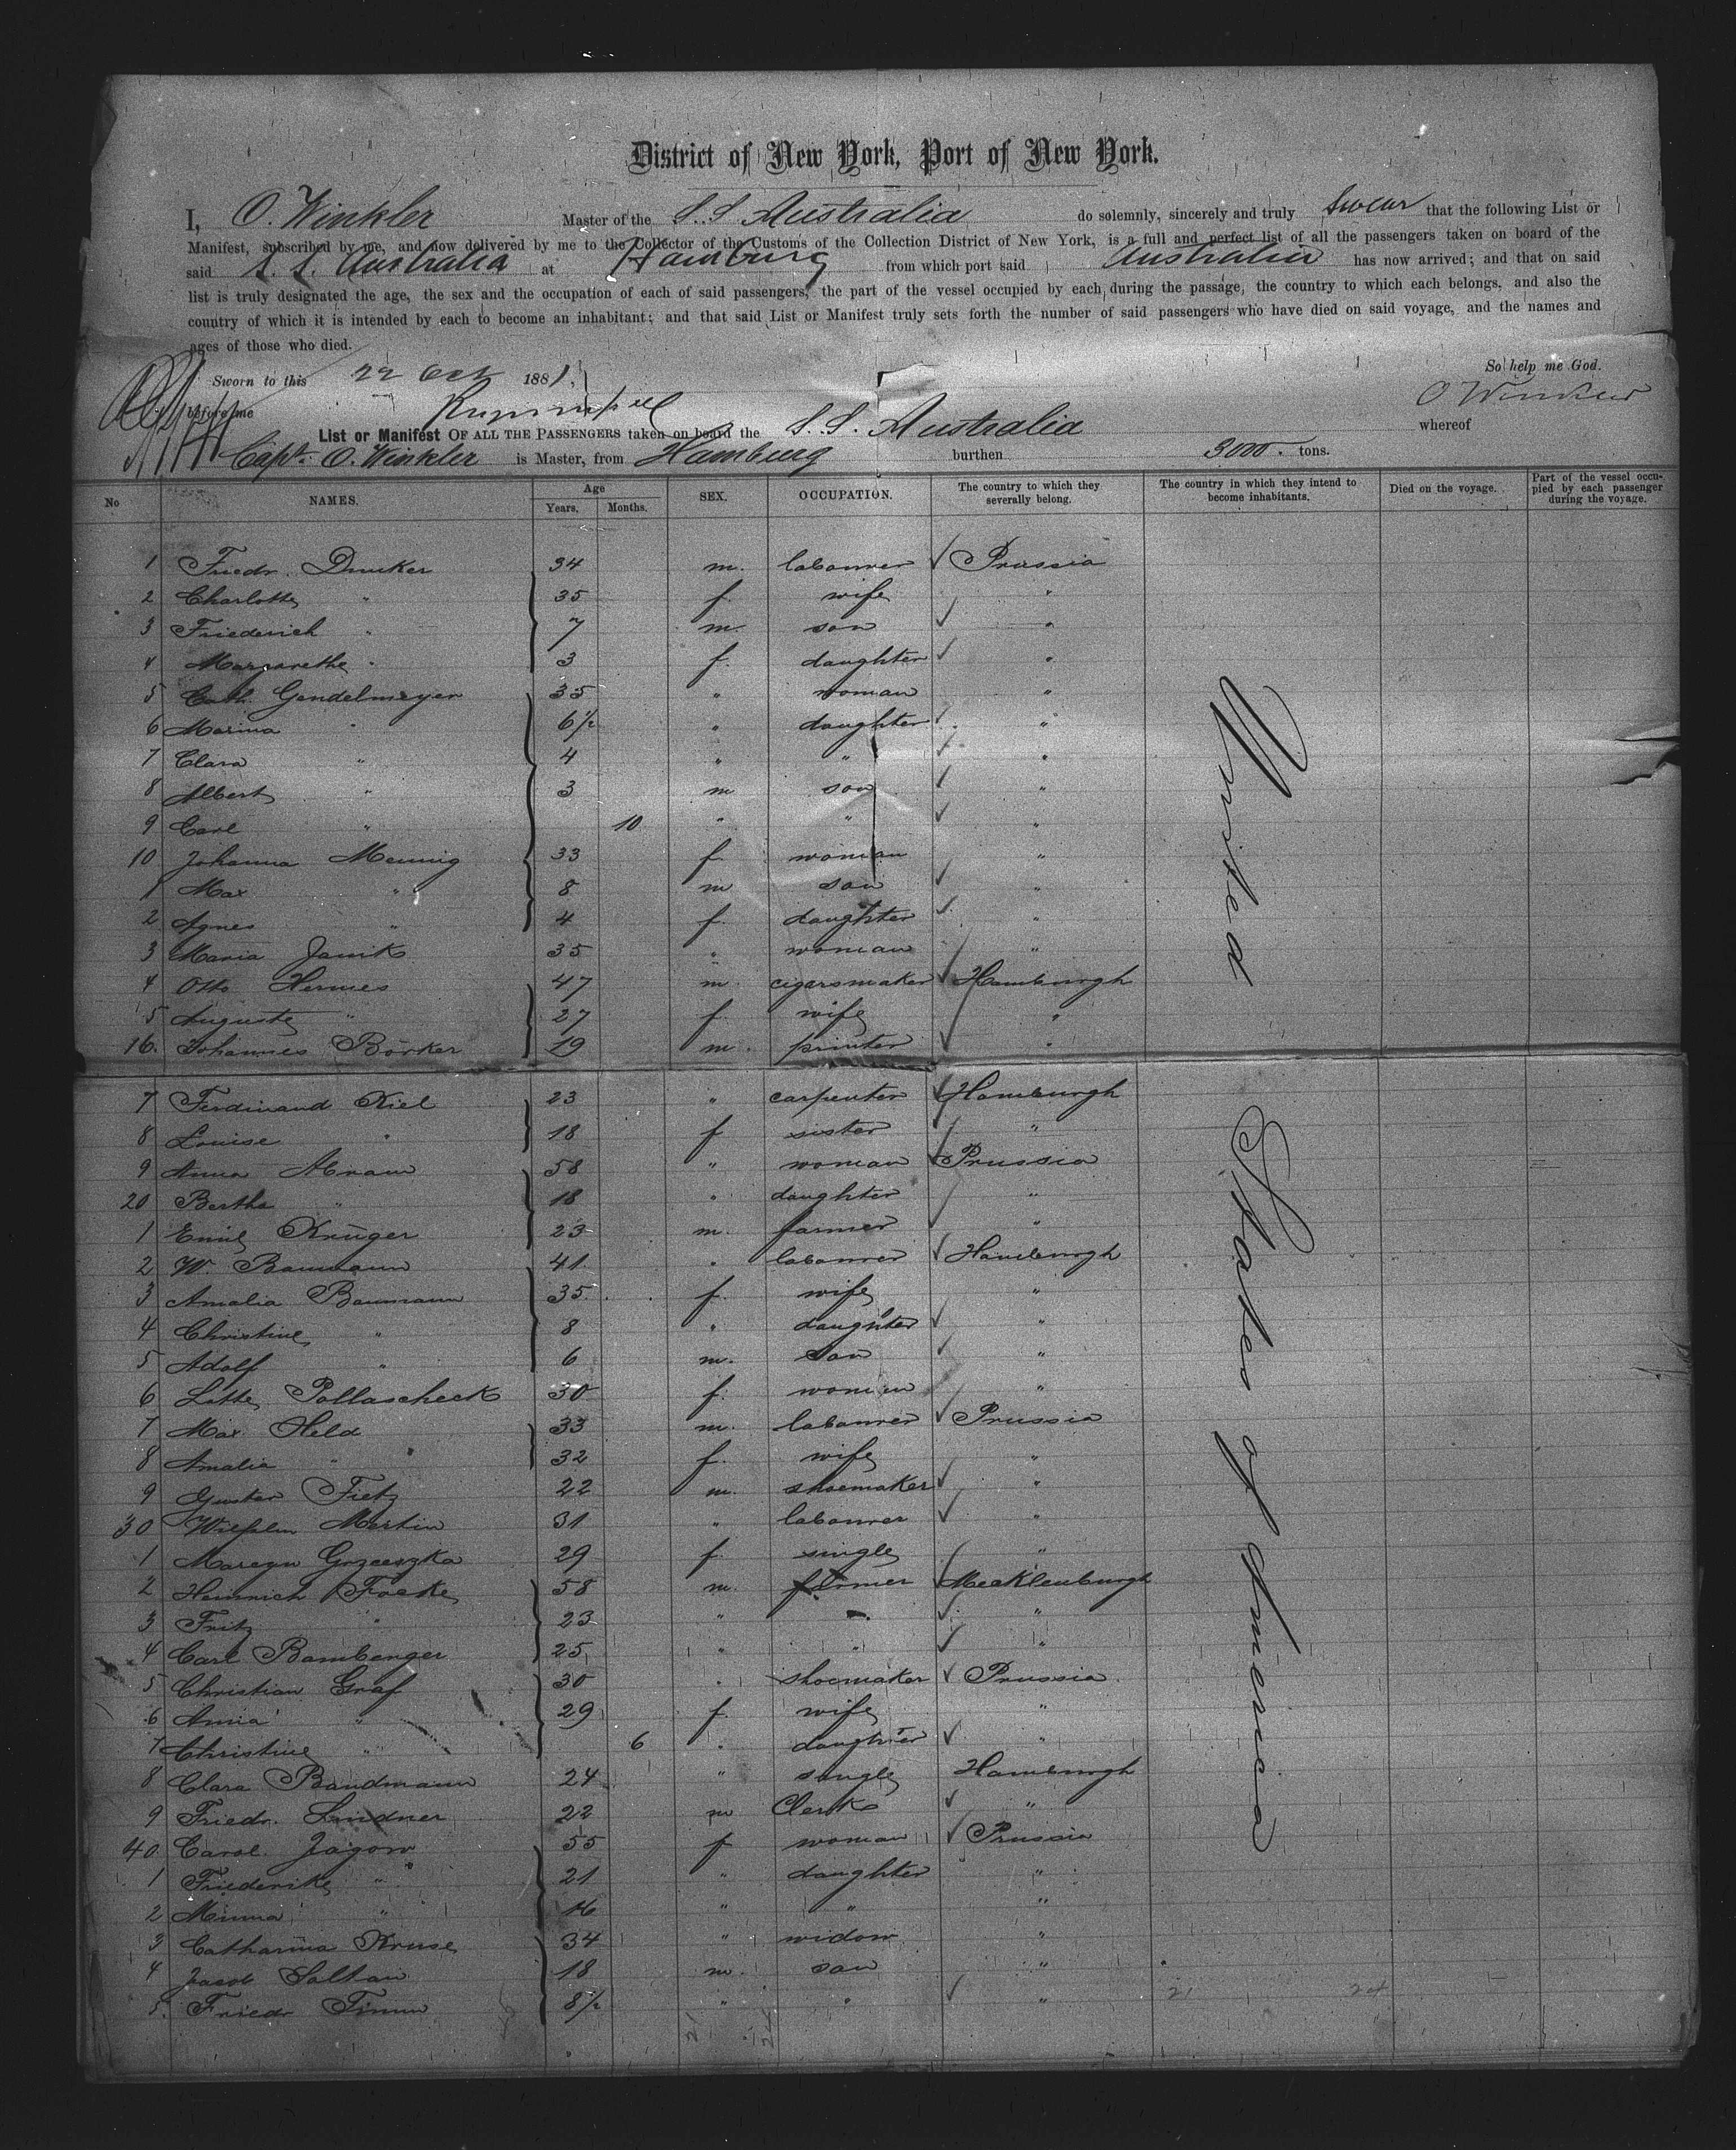 District of New York, Port of New York.
I, O. Winkler Master of the S.S. Australia do solemnly, sincerely and truly swear that the following List or
Manifest, subscribed by me, and now delivered by me to the Collector of the Customs of the Collection District of New York, is a full and perfect list of all the passengers taken on board of the
said S. S. Australia at Hamburg from which port said Australia has now arrived; and that on said
list is truly designated the age, the sex and the occupation of each of said passengers, the part of the vessel occupied by each during the passage, the country to which each belongs, and also the
country of which it is intended by each to become an inhabitant; and that said List or Manifest truly sets forth the number of said passengers who have died on said voyage, and the names and
ages of those who died.
So help me God.
Sworn to this 22 Oct 1881.
before me
O Winkler
List or Manifest OF ALL THE PASSENGERS taken on board the S. S. Australia whereof
Capt. O. Winkler is Master, from Hamburg burthen 3000. tons.
No NAMES. Age Years. Months. SEX. OCCUPATION. The country to which they severally belong. The country in which they intend to become inhabitants. Died on the voyage. Part of the vessel occupied by each passenger during the voyage.
1 Friedr. Duncker 34 m. labourer Prussia
2 Charlotte " 35 f. wife "
3 Friederich " 7 m. son "
4 Margarethe " 3 f. daughter "
5 Cath. Gendelmeyer 35 " woman "
6 Marina " 6½ " daughter "
7 Clara " 4 " " "
8 Albert " 3 m son "
9 Carl " 10 " " "
10 Johanna Mennig 33 f. woman "
1 Max " 8 m son "
2 Agnes " 4 f. daughter "
3 Maria Janik 35 " woman "
4 Otto Hermes 47 m. cigarsmaker Hamburgh
5 Auguste " 27 f. wife "
16. Johannes Börker 19 m. printer "
7 Ferdinand Kiel 23 " carpenter Hamburgh
8 Louise " 18 f sister "
9 Anna Abram 58 " woman Prussia
20 Bertha " 18 " daughter "
1 Emil Krüger 23 m. farmer "
2 W. Baumann 41 " labourer Hamburgh
3 Amalia Baumann 35 f. wife "
4 Christine " 8 " daughter "
5 Adolf " 6 m. son "
6 Lotte Pollascheck 30 f. woman "
7 Max Held 33 m. labourer Prussia
8 Amalia " 32 f. wife "
9 Gustav Fietz 22 m. shoemaker "
30 Wilhelm Martin 31 " labourer "
1 29 f. single "
2 Heinrich Facke 58 m. farmer Mecklenburgh
3 Fritz " 23 " " "
4 Carl Bamberger 25 " " "
5 Christian Graf 30 " shoemaker Prussia
6 Anna " 29 f. wife "
7 Christine " 6 " daughter "
8 Clara Bandmann 24 " single Hamburgh
9 Friedr. Lindner 22 m Clerk "
40 Carol. Jagow 55 f woman Prussia
1 Friederike " 21 " daughter "
2 Minna " 16 " " "
3 Catharina Kruse 34 " widow "
4 Jacob Saltau 18 m. son "
5. Friedr Timm 8½ " " "
United States of America
21 24